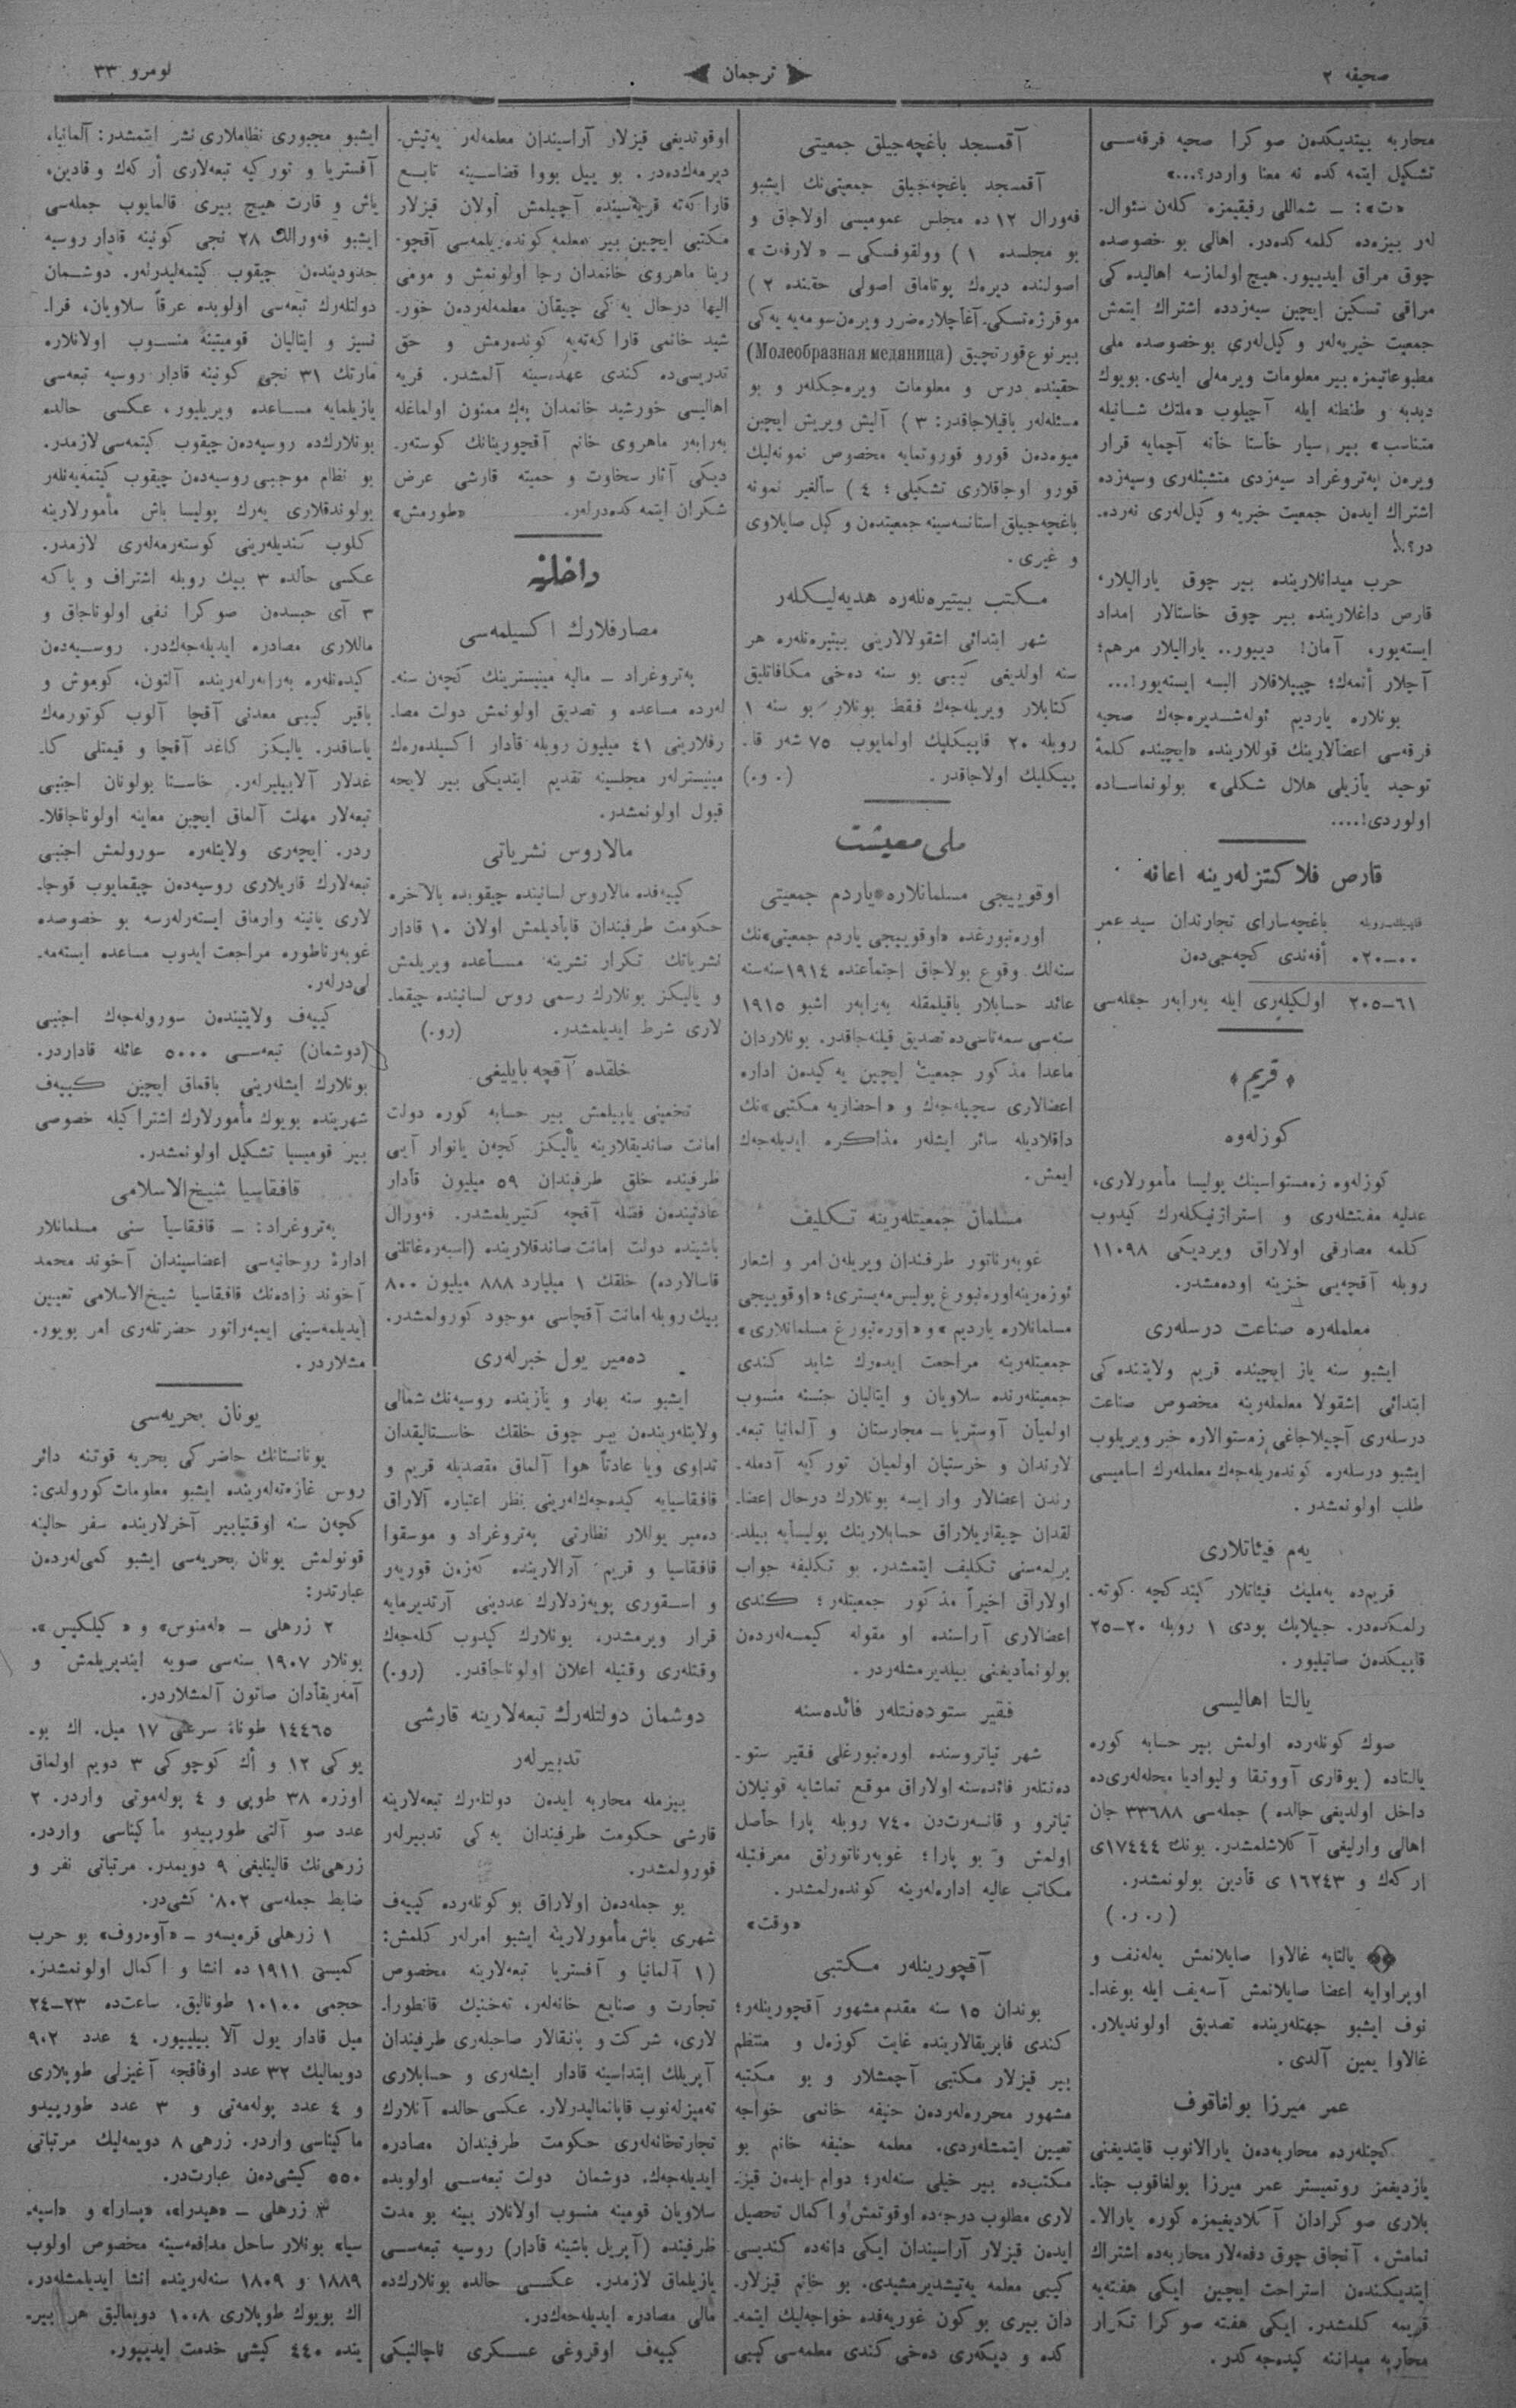 صحیفه ٢
ترجمان
نومرو ٣٣
محاربه بیتدیکدن صوکرا صحیه فرقه‌سی
تشکیل ایتمه کده نه معنا واردر؟...»
«ت»: ــ شماللی رفیقیمزه کلەن سئوال-
لەر بیزەده کلمه کده‌در. اهالی بو خصوصده
چوق مراق ایدییور. هیچ اولمازسه اهالیده کی
مراقی تسکین ایچین سیه‌زدده اشتراك ایتمش
جمعیت خیریه‌لەر و کیل‌لەری بوخصوصده ملی
مطبوعاتیمزه بیر معلومات ویرمەلی ایدی. بویوك
دبدبه و طنطنه ایله آچیلوب «ملتك شانیله
متناسب» بیر سیار خاستا خانه آچمایه قرار
ویرەن پەتروغراد سیه‌زدی متشبثلەری وسیه‌زده
اشتراك ایدەن جمعیت خیریه و کیل‌لەری نەرده-
در؟..
حرب میدانلارینده بیر چوق یارالیلار،
قارص داغلارینده بیر چوق خاستالار امداد
ایستەیور، آمان! دییور.. یارالیلار مرهم؛
آجلار أتمەك؛ چیپلاقلار البسه ایستەیور!...
بونلاره یاردیم ئولەشدیرەجەك صحیه
فرقه‌سی اعضالارینك قوللارینده «ایچینده کلمۀ
توحید یازیلی هلال شکلی» بولونماساده
اولوردی!....
قارص فلاکتزلەرینه اعانه
قاپیك‌ــروبله باغچه‌سارای تجارندان سید عمر
٠٠ــ٠٢٠ أفەندی کچه‌جی‌دەن
٦١ــ٢٠٥ اولکیلەری ایله بەرابەر جمله‌سی
«قریم»
کوزلەوه
کوزلەوه زەمستواسینك پولیسا مأمورلاری،
عدلیه مفتشلەری و استراژنیکلەرك کیدوب
کلمه مصارفی اولاراق ویردیکی ١١٠٩٨
روبله آقچه‌یی خزینه اودەمشدر.
معلملەره صناعت درسلەری
ایشبو سنه یاز ایچینده قریم ولایتنده کی
ابتدائی اشقولا معلملەرینه مخصوص صناعت
درسلەری آچیلاجاغی زەمستوالاره خبر ویریلوب
ایشبو درسلەره کوندەریلەجەك معلملەرك اسامیسی
طلب اولونمشدر.
یەم فیئاتلاری
قریم‌ده یەملیك فیئاتلار کیتدکچه کوتە-
رلمکده‌در. جیلاپك پودی ١ روبله ٢٠ــ٢٥
قاپیکدەن صاتیلیور.
یالتا اهالیسی
صوك کونلەرده اولمش بیر حسابه کوره
یالتاده (یوقاری آووتقا و لیوادیا محله‌لەری‌ده
داخل اولدیغی حالده) جمله‌سی ٣٣٦٨٨ جان
اهالی وارلیغی آکلاشلمشدر. بونك ١٧٤٤٤ی
ارکەك و ١٦٢٤٣ ی قادین بولونمشدر.
(ر. ر.)
یالتایه غالاوا صایلانمش بەلەنف و
اوپراوایه اعضا صایلانمش آسەیف ایله بوغدا-
نوف ایشبو جهتلەرینده تصدیق اولوندیلار.
غالاوا یمین آلدی.
عمر میرزا بولغاقوف
کچنلەرده محاربه‌دەن یارالانوب قایتدیغنی
یازدیغمز روتمیستر عمر میرزا بولغاقوب جنا-
بلاری صوکرادان آکلادیغیمزه کوره یارالا-
نمامش، آنجاق چوق دفعه‌لار محاربه‌ده اشتراك
ایتدیکندەن استراحت ایچین ایکی هفته‌یه
قریمه کلمشدر. ایکی هفته صوکرا تکرار
محاربه میداننه کیدەجه کدر.
آقمسجد باغچه‌جیلق جمعیتی
آقمسجد باغچه‌جیلق جمعیتی‌نك ایشبو
فەورال ١٢ ده مجلس عمومیسی اولاجاق و
بو مجلسده ١) وولقوفسکی ــ «لارفت»
اصولنده دیرەك بوتاماق اصولی حقنده ٢)
موقرژەتسکی. آغاچلاره‌ضرر ویرەن‌سومه‌یه یەکی
بیرنوع‌قورتچیق (Молеобразная медяница)
حقینده درس و معلومات ویرەجکلەر و بو
مسئله‌لەر باقیلاجاقدر: ٣) آلیش ویریش ایچین
میوەدەن قورو قوروتمایه مخصوص نمونه‌لیك
قورو اوجاقلاری تشکیلی؛ ٤) سالغیر نمونه
باغچه‌جیلق استانسه‌سینه جمعیتدەن وکیل صایلاوی
و غیری.
مکتب بیتیرەنلەره هدیه‌لیکلەر
شهر ابتدائی اشقولالارینی بیتیرەنلەره هر
سنه اولدیغی کیبی بو سنه دەخی مکافاتلیق
کتابلار ویریلەجەك فقط بونلار بو سنه ١
روبله ٢٠ قاپیکلیك اولمایوب ٧٥ شەر قا-
پیکلیك اولاجاقدر. (. و.)
ملی معیشت
اوقویبجی مسلمانلاره یاردم جمعیتی
اورەنبورغده «اوقویبجی یاردم جمعیتی»نك
سنه‌لك وقوع بولاجاق اجتماعنده ١٩١٤ سنه‌سنه
عائد حسابلار باقیلمقله بەرابەر اشبو ١٩١٥
سنه‌سی سمه‌تاسی‌ده تصدیق قیلنه‌جاقدر. بونلاردان
ماعدا مذکور جمعیت ایچین یەکیدەن اداره
اعضالاری سچیلەجەك و «احضاریه مکتبی»نك
داقلادیله سائر ایشلەر مذاکره ایدیلەجەك
ایمش.
مسلمان جمعیتلەرینه تکلیف
غوبەرناتور طرفندان ویریلەن امر و اشعار
ئوزەرینه‌اورەنبورغ پولیس‌مەیستری؛ «اوقویبجی
مسلمانلاره یاردیم» و «اورەنبورغ مسلمانلاری»
جمعیتلەرینه مراجعت ایدەرك شاید کندی
جمعیتلەرنده سلاویان و ایتالیان جنسنه منسوب
اولمیان آوستریا ــ مجارستان و آلمانیا تبعه-
لارندان و خرستیان اولمیان تورکیه آدمله-
رندن اعضالار وار ایسه بونلارك درحال اعضا-
لقدان چیقاریلاراق حسابلارینك پولیسایه بیلد-
یرلمەسنی تکلیف ایتمشدر. بو تکلیفه جواب
اولاراق اخیراً مذکور جمعیتلەر؛ کندی
اعضالاری آراسنده او مقوله کیمسه‌لەردەن
بولونمادیغنی بیلدیرمشلەردر.
فقیر ستودەنتلەر فائدەسنه
شهر تیاتروسنده اورەنبورغلی فقیر ستو-
دەنتلەر فائدەسنه اولاراق موقع تماشایه قونیلان
تیاترو و قانسەرت‌دن ٧٤٠ روبله پارا حاصل
اولمش و بو پارا؛ غوبەرناتورلق معرفتیله
مکاتب عالیه اداره‌لەرینه کوندەرلمشدر.
«وقت»
آقچورینلەر مکتبی
بوندان ١٥ سنه مقدم مشهور آقچورینلەر؛
کندی فابریقالارینده غایت کوزەل و منتظم
بیر قیزلار مکتبی آچمشلار و بو مکتبه
مشهور محررەلەردەن حنیفه خانمی خواجه
تعیین ایتمشلەردی. معلمه حنیفه خانم بو
مکتب‌ده بیر خیلی سنه‌لەر؛ دوام ایدەن قیز-
لاری مطلوب درجەده اوقوتمش و اکمال تحصیل
ایدەن قیزلار آراسیندان ایکی دانه‌ده کندیسی
کیبی معلمه یەتیشدیرمشیدی. بو خانم قیزلار-
دان بیری بو کون غوریەفده خواجەلیك ایتمه-
کده و دیکەری دەخی کندی معلمه‌سی کیبی
اوقوتدیغی قیزلار آراسیندان معلمه‌لەر یەتیش-
دیرمەکده‌در. بو ییل بووا قضاسینه تابع
قاراکەته قریه‌سینده آچیلمش اولان قیزلار
مکتبی ایچین بیر معلمه کوندەریلمەسی آقچو-
رینا ماهروی خانمدان رجا اولونمش و مومی
الیها درحال یەکی چیقان معلمه‌لەردەن خور-
شید خانمی قاراکەته‌یه کوندەرمش و حق
تدریسی‌ده کندی عهدەسینه آلمشدر. قریه
اهالیسی خورشید خانمدان پەك ممنون اولماغله
بەرابەر ماهروی خانم آقچورینانك کوستەر-
دیکی آثار سخاوت و حمیته قارشی عرض
شکران ایتمه کده‌درلەر. «طورمش»
داخلیه
مصارفلارك اکسیلمەسی
پەتروغراد ــ مالیه مینیسترینك کچەن سنه-
لەرده مساعده و تصدیق اولونمش دولت مصا-
رفلارینی ٤١ میلیون روبله قادار اکسیلدەرەك
مینیسترلەر مجلسینه تقدیم ایتدیکی بیر لایحه
قبول اولونمشدر.
مالاروس نشریاتی
کییەفده مالاروس لسانینده چیقوبده بالآخره
حکومت طرفیندان قاپادیلمش اولان ١٠ قادار
نشریاتك تکرار نشرینه مساعده ویریلمش
و یالیکز بونلارك رسمی روس لسانینده چیقما-
لاری شرط ایدیلمشدر. (رو.)
خلقده آقچه بایلیغی
تخمینی یاپیلمش بیر حسابه کوره دولت
امانت صاندیقلارینه یالیکز کچەن یانوار آیی
ظرفینده خلق طرفیندان ٥٩ میلیون قادار
عادتیندەن فضله آقچه کتیریلمشدر. فەورال
باشینده دولت امانت صاندقلارینده (اسبەرەغاتلنی
قاسالارده) خلقك ١ میلیارد ٨٨٨ میلیون ٨٠٠
بیك روبله امانت آقچاسی موجود کورولمشدر.
دەمیر یول خبرلەری
ایشبو سنه بهار و یازینده روسیه‌نك شمالی
ولایتلەریندەن بیر چوق خلقك خاستالیقدان
تداوی ویا عادتاً هوا آلماق مقصدیله قریم و
قافقاسیایه کیدەجەك‌لەرینی نظر اعتباره آلاراق
دەمیر یوللار نظارتی پەتروغراد و موسقوا
قافقاسیا و قریم آرالارینده کەزەن قوریەر
و اسقوری پویەزدلارك عددینی آرتدیرمایه
قرار ویرمشدر، بونلارك کیدوب کلەجەك
وقتلەری وقتیله اعلان اولوناجاقدر. (رو.)
دوشمان دولتلەرك تبعه‌لارینه قارشی
تدبیرلەر
بیزمله محاربه ایدەن دولتلەرك تبعه‌لارینه
قارشی حکومت طرفیندان یەکی تدبیرلەر
قورولمشدر.
بو جمله‌دەن اولاراق بو کونلەرده کییەف
شهری باش مأمورلارینه ایشبو امرلەر کلمش:
(١ آلمانیا و آفستریا تبعه‌لارینه مخصوص
تجارت و صنایع خانه‌لەر، تەخنیك قانطورا-
لاری، شرکت و یانقالار صاحبلەری طرفیندان
آپریلك ابتداسینه قادار ایشلەری و حسابلاری
تەمیزلەنوب قاپانمالیدرلار. عکسی حالده آنلارك
تجارتخانه‌لەری حکومت طرفیندان مصادره
ایدیلەجەك. دوشمان دولت تبعه‌سی اولوبده
سلاویان قومینه منسوب اولانلار یینه بو مدت
ظرفینده (آپریل باشینه قادار) روسیه تبعه‌سی
یازیلماق لازمدر. عکسی حالده بونلارك‌ده
مالی مصادره ایدیلەجەك‌در.
کییەف اوقروغی عسکری ناچالنیکی
ایشبو مجبوری نظاملاری نشر ایتمشدر: آلمانیا،
آفستریا و تورکیه تبعه‌لاری أرکەك و قادین،
یاش و قارت هیچ بیری قالمایوب جمله‌سی
ایشبو فەورالك ٢٨ نجی کونینه قادار روسیه
حدودیندەن چیقوب کیتمەلیدرلەر. دوشمان
دولتلەرك تبعه‌سی اولوبده عرقاً سلاویان، فرا-
نسیز و ایتالیان قومیتینه منسوب اولانلاره
مارتك ٣١ نجی کونینه قادار روسیه تبعه‌سی
یازیلمایه مساعده ویریلیور، عکسی حالده
بونلارك‌ده روسیه‌دەن چیقوب کیتمەسی لازمدر.
بو نظام موجبی روسیه‌دەن چیقوب کیتمەیەنلەر
بولوندقلاری یەرك پولیسا باش مأمورلارینه
کلوب کندیلەرینی کوستەرمەلەری لازمدر.
عکسی حالده ٣ بیك روبله اشتراف و یاکه
٣ آی حبسدەن صوکرا نفی اولوناجاق و
ماللاری مصادره ایدیلەجەك‌در. روسیه‌دەن
کیدەنلەره بەرابەرلەرینده آلتون، کوموش و
باقیر کیبی معدنی آقچا آلوب کوتورمەك
یاساقدر. یالیکز کاغد آقچا و قیمتلی کا-
غدلار آلابیلیرلەر. خاستا بولونان اجنبی
تبعه‌لار مهلت آلماق ایچین معاینه اولوناجاقلا-
ردر. ایچەری ولایتلەره سورولمش اجنبی
تبعه‌لارك قاریلاری روسیه‌دەن چیقمایوب قوجا-
لاری یانینه وارماق ایستەرلەرسه بو خصوصده
غوبەرناطوره مراجعت ایدوب مساعده ایستەمه-
لی‌درلەر.
کییەف ولایتیندەن سورولەجەك اجنبی
(دوشمان) تبعه‌سی ٥٠٠٠ عائله قاداردر.
بونلارك ایشلەرینی باقماق ایچین کییەف
شهرینده بویوك مأمورلارك اشتراکیله خصوصی
بیر قومیسیا تشکیل اولونمشدر.
قافقاسیا شیخ‌الاسلامی
پەتروغراد: ــ قافقاسیا سنی مسلمانلار
ادارۀ روحانیه‌سی اعضاسیندان آخوند محمد
آخوند زادەنك قافقاسیا شیخ‌الاسلامی تعیین
ایدیلمەسینی ایمپەراتور حضرتلەری امر بویور-
مشلاردر.
یونان بحریه‌سی
یونانستانك حاضرکی بحریه قوتنه دائر
روس غازەتەلەرینده ایشبو معلومات کورولدی:
کچەن سنه اوقتیابیر آخرلارینده سفر حالینه
قونولمش یونان بحریه‌سی ایشبو کمی‌لەردەن
عبارتدر:
٢ زرهلی ــ «لەمنوس» و «کیلکیس».
بونلار ١٩٠٧ سنه‌سی صویه ایندیریلمش و
آمەریقادان صاتون آلمشلاردر.
١٤٤٦٥ طوناۀ سرعتی ١٧ میل. اك بو-
یوکی ١٢ و أك کوچوکی ٣ دویم اولماق
اوزره ٣٨ طوپی و ٤ پولەموتی واردر. ٢
عدد صو آلتی طورپیدو ماکیناسی واردر.
زرهی‌نك قالینلیغی ٩ دویمدر. مرتباتی نفر و
ضابط جمله‌سی ٨٠٢ کشی‌در.
١ زرهلی قرەیسەر ــ «آوەروف» بو حرب
کمیسی ١٩١١ ده انشا و اکمال اولونمشدر.
حجمی ١٠١٠٠ طونالیق. ساعت‌ده ٢٣ــ٢٤
میل قادار یول آلا بیلییور. ٤ عدد ٩٠٢
دویمالیك ٣٢ عدد اوفاقجه آغیزلی طوپلاری
و ٤ عدد پولەمەتی و ٣ عدد طورپیدو
ماکیناسی واردر. زرهی ٨ دویمەلیك مرتباتی
٥٥٠ کیشی‌دەن عبارت‌در.
٣ زرهلی ــ «هیدرا»، «پسارا» و «اسپه-
سیا» بونلار ساحل مدافعه‌سینه مخصوص اولوب
١٨٨٩ و ١٨٠٩ سنه‌لەرینده انشا ایدیلمشلەدر.
اك بویوك طوپلاری ١٠٠٨ دویمالیق هر بیر-
ینده ٤٤٠ کیشی خدمت ایدییور.